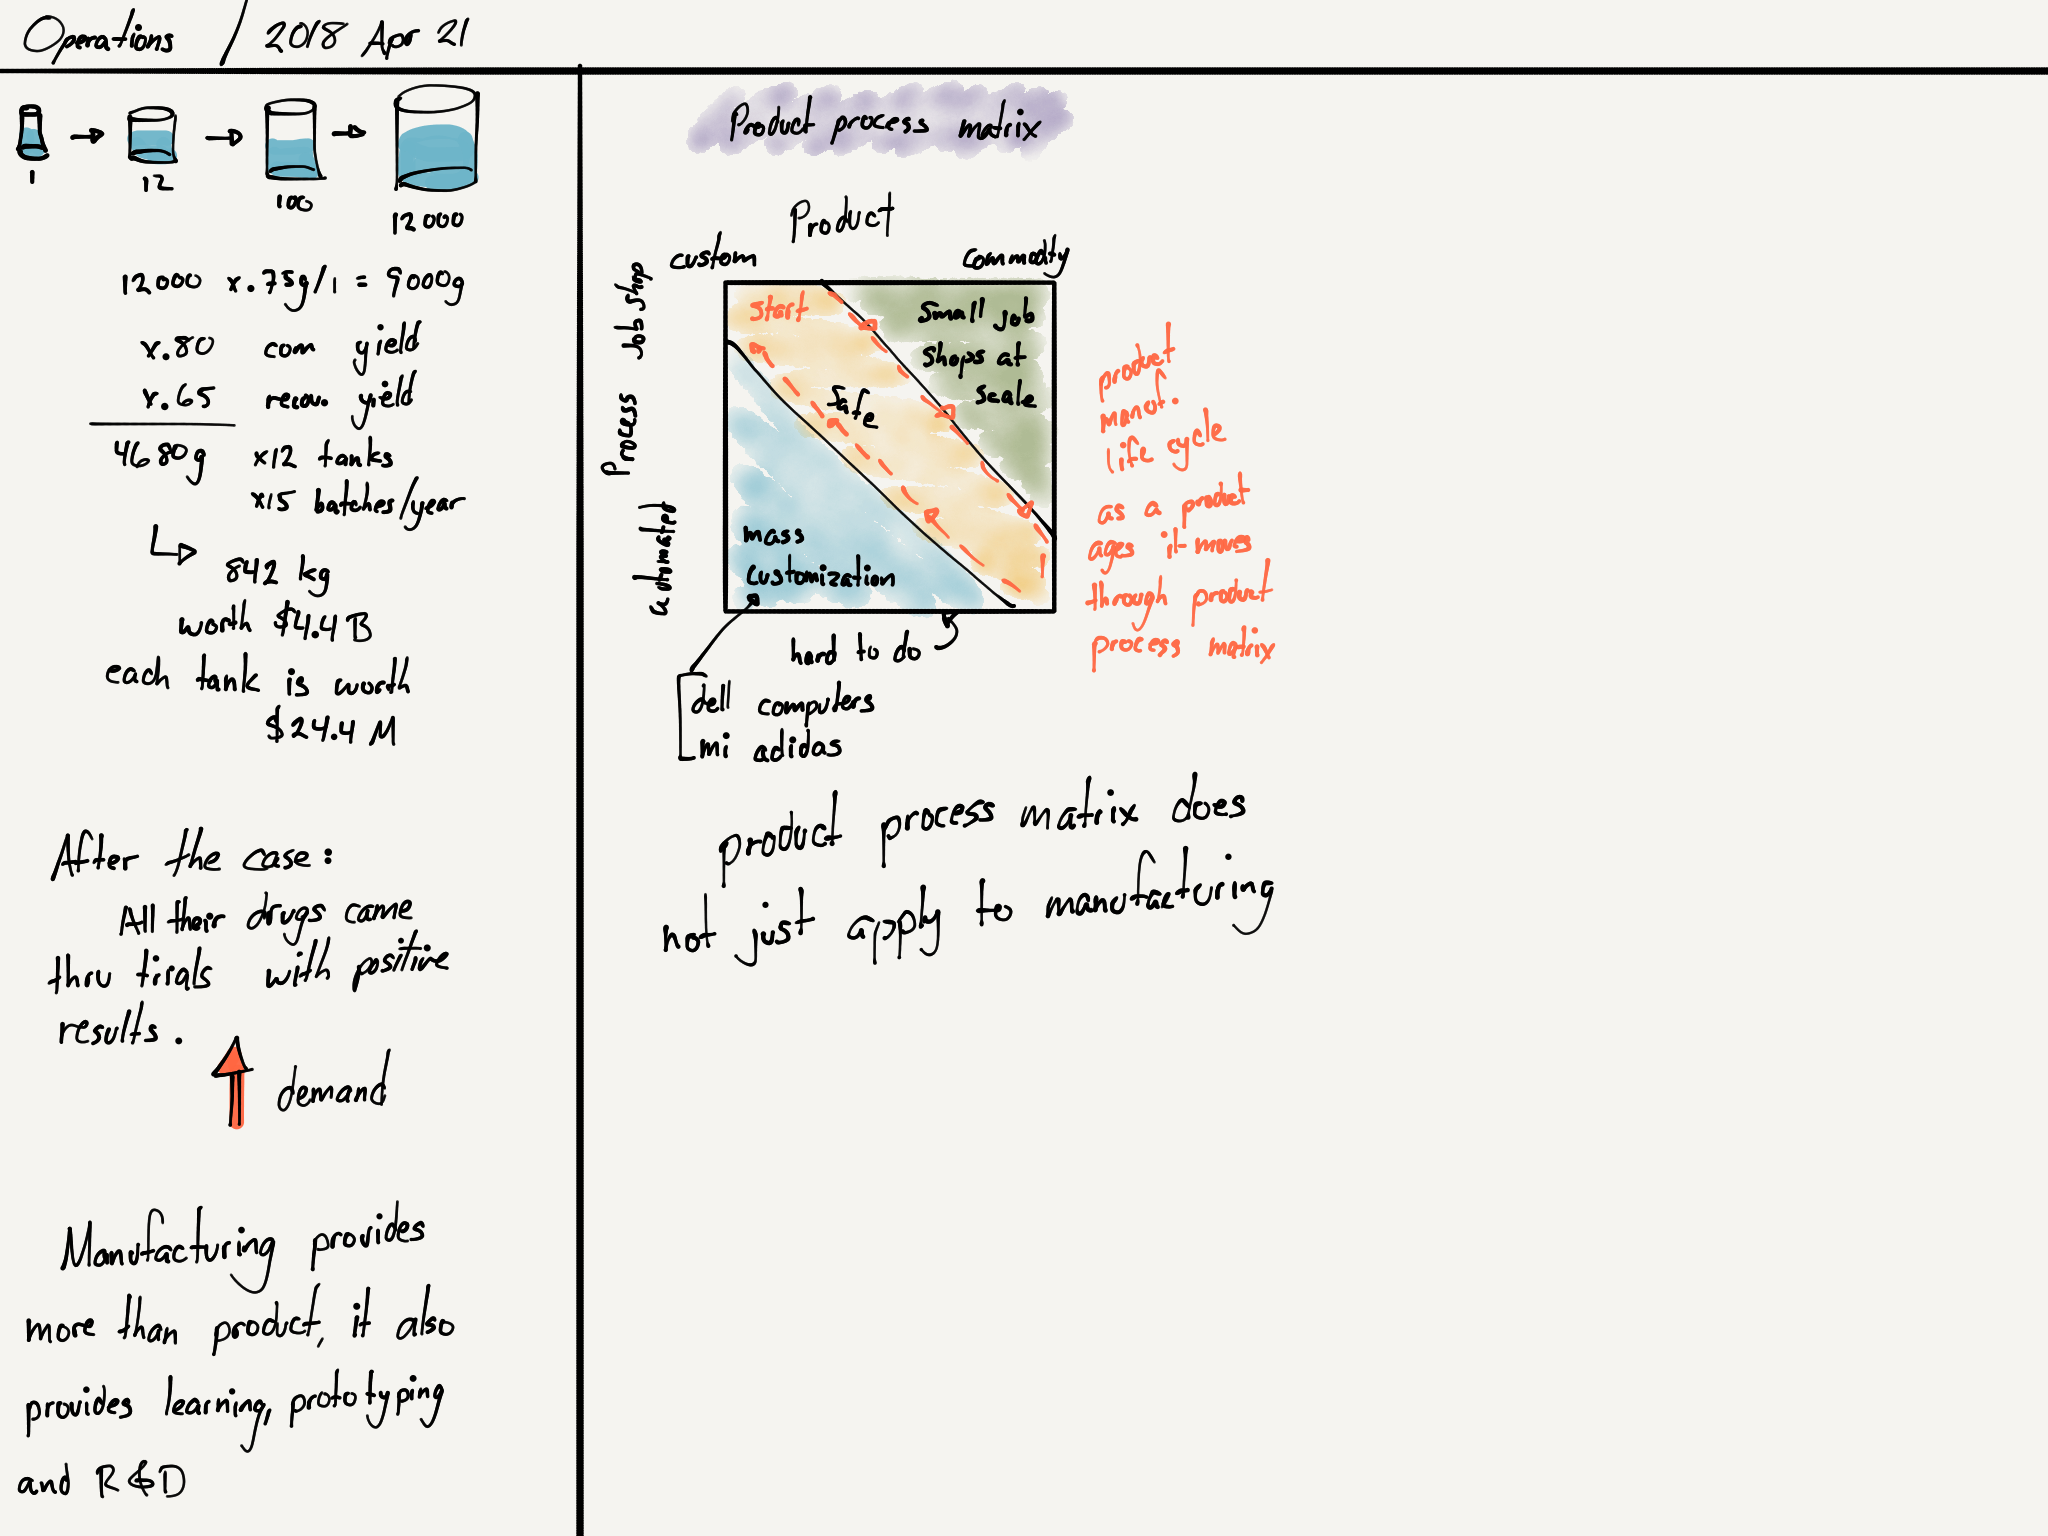 Operations / 2018 Apr 21
1
12
100
12000
12000 x.75g/l = 9000g
x.80 com yield
x.65 recov. yield
4680g x12 tanks
x15 batches/year
842 kg
worth $4.4 B
each tank is worth
$24.4 M
After the case:
All their drugs came
thru tirals with positive
results.
demand
Manufacturing provides
more than product, it also
provides learning, prototyping
and R&D
Product process matrix
Product
custom
commodity
Process
Job shop
automated
start
Small job
shops at
scale
Safe
mass
customization
hard to do
dell computers
mi adidas
product
manuf.
life cycle
as a product
ages it moves
through product
process matrix
product process matrix does
not just apply to manufacturing